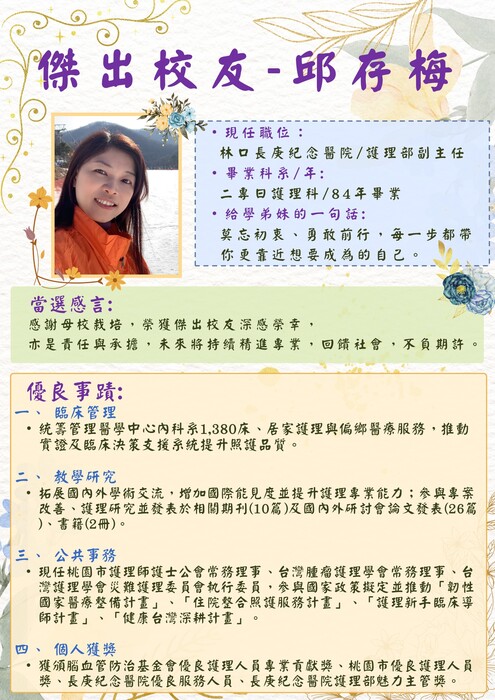 傑出校友-邱存梅
•現任職位：
林口長庚紀念醫院/護理部副主任
•畢業科系/年:
二專日護理科/84年畢業
•給學弟妹的一句話:
莫忘初衷、勇敢前行，每一步都帶
你更靠近想要成為的自己。
當選感言:
感謝母校栽培，榮獲傑出校友深感榮幸，
亦是責任與承擔，未來將持續精進專業，回饋社會，不負期許。
優良事蹟:
一、 臨床管理
•統籌管理醫學中心內科系1,380床、居家護理與偏鄉醫療服務，推動
實證及臨床決策支援系統提升照護品質。
二、 教學研究
•拓展國內外學術交流，增加國際能見度並提升護理專業能力；參與專案
改善、護理研究並發表於相關期刊(10篇)及國內外研討會論文發表(26篇
)、書籍(2冊)。
三、 公共事務
•現任桃園市護理師護士公會常務理事、台灣腫瘤護理學會常務理事、台
灣護理學會災難護理委員會執行委員，參與國家政策擬定並推動「韌性
國家醫療整備計畫」、「住院整合照護服務計畫」、「護理新手臨床導
師計畫」、「健康台灣深耕計畫」。
四、 個人獲獎
•獲頒腦血管防治基金會優良護理人員專業貢獻獎、桃園市優良護理人員
獎、長庚紀念醫院優良服務人員、長庚紀念醫院護理部魅力主管獎。